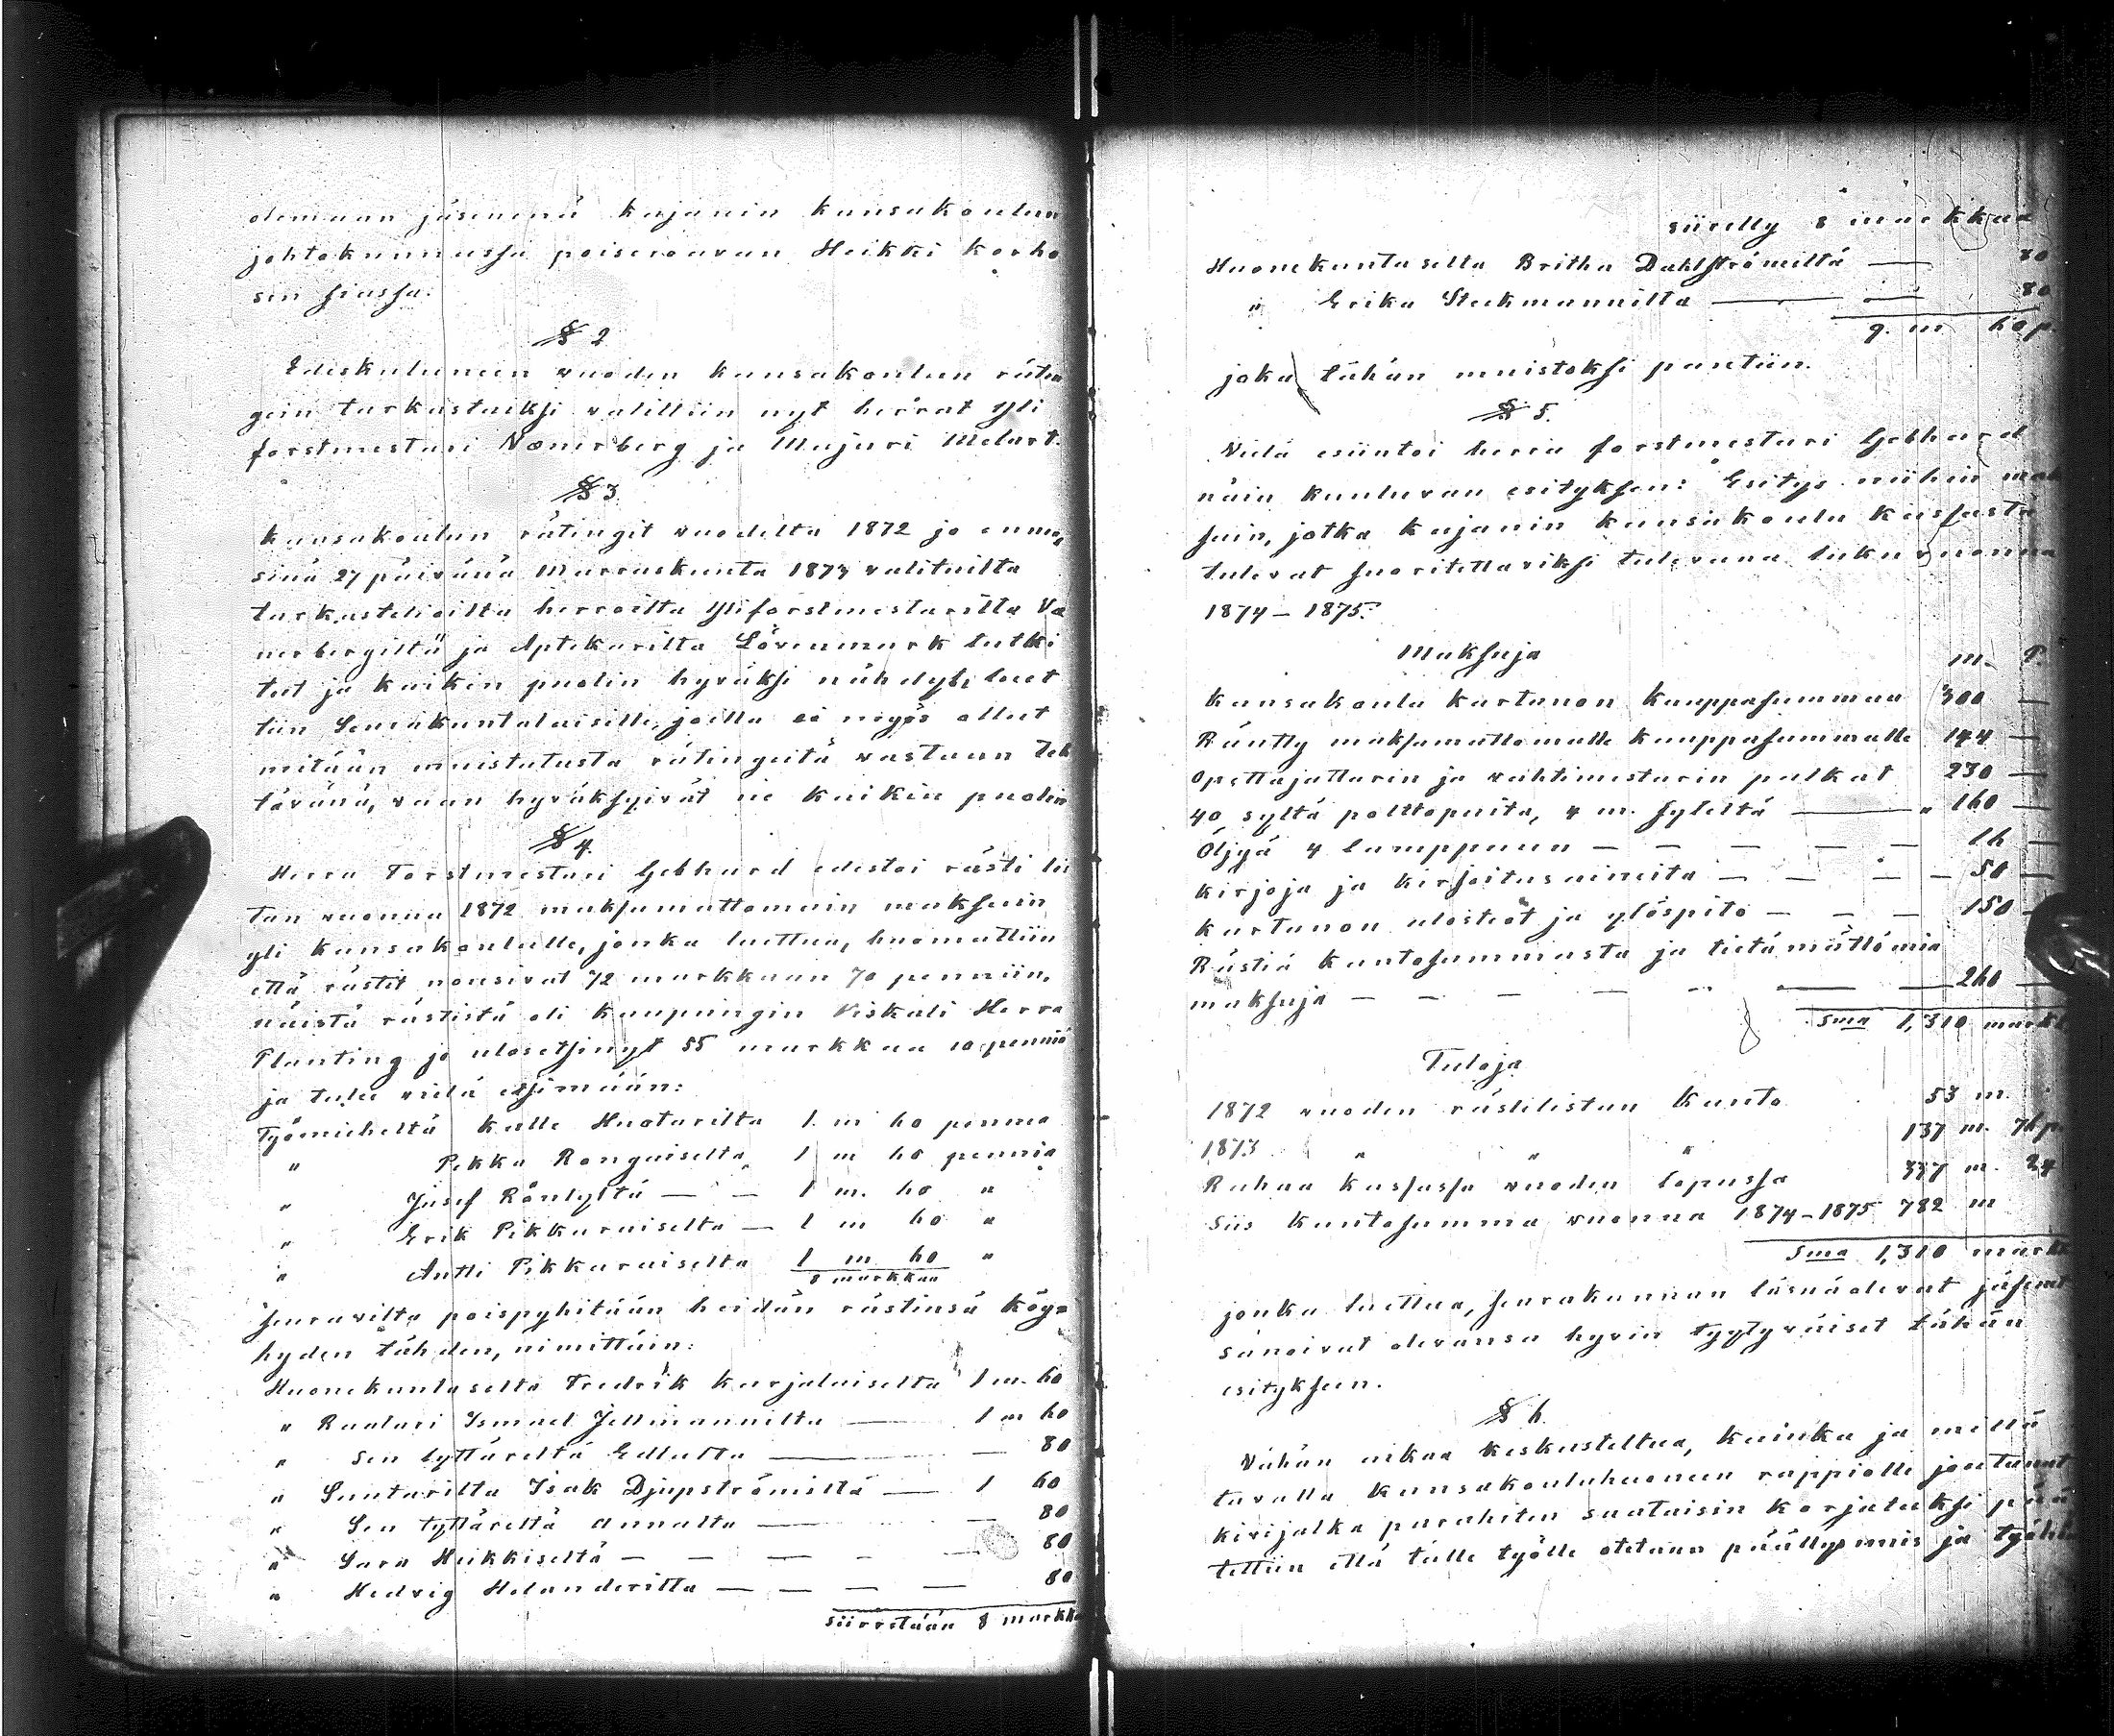 olemaan jäsenenä Kajanin kansakoulun
johtokunnassa poiseroavan Heikki Korho
sen siassa.
§ 2
Ediskuluneen vuoden kansakoulun rätin
gein tarkastaiksi valittiin nyt herrat Yli
forstmestari Wænerberg ja Majuri Melart.
§ 3.
Kansakoulun rätingit vuodelta 1872 jo enne,
sinä 27 päivänä Marraskuuta 1873 valituilta
tarkastelioilta herroilta Yliforstmestarilta Væ
nerbergiltä ja Aptekarilta Lövenmark tutki
tut ja kaikin puolin hyväksi nähdyt, luet
tiin Seurakuntalaisille, joilla ei myös ollut
mitään muistutusta rätingeitä vastaan teh
tävänä, vaan hyväksyivät ne kaikin puolin
§ 4.
Herra Forstmestari Gebhard edestoi rästi lis
tan vuonna 1872 maksamattomain maksuin
yli kansakoululle, jonka luettua, huomattiin
että rästit nousivat 72 markkaan 70 penniin,
näistä rästistä oli kaupungin Viskali Herra
Planting jo ulosetsinyt 55 markkaa 10 penniä
ja tulee vielä etsimään:
Työmieheltä Kalle Huotarilta 1 m 60 penniä
" Pekka Rongaiselta 1 m 60 penniä
" Josef Räntyltä — — 1 m. 60 "
" Erik Pikkaraiselta — 1 m 60 "
" Antti Pikkaraiselta 1 m 60 "
8 markkaa
seuravilta poispyhitään heidän rästinsä köy=
hyden tähden, nimittäin:
Huonekuntaselta Fredrik Karjalaiselta 1 m. 60
" Raaturi Ismael Jellmannilta — 1 m 60
" sen tyttäreltä Edlutta — — 80
" Suutarilta Isak Djupströmiltä — 1 60
" Sen tyttäreltä Annalta — — 80
" Sara Heikkiseltä — — — — — 80
" Hedvig Helanderilta — — — — 80
Siirretään 8 markka
siiretty 8 markkaa
Huonekuntaselta Britha Dahlströmiltä — 80
" Erika Steckmannilta — — 80
9. m 60 p.
joka tähän muistoksi pantiin.
§ 5.
Vielä esiintoi herra forstmestari Gebhard
näin kuuluvan esityksen: Esitys niihin mak
suin, jotka Kajanin kansakoulu kassasta
tulevat suoritettaviksi tulevana luku vuonna
1874 – 1875.
Maksuja m. P.
Kansakoulu kartanon kauppasummaa 300 —
Räntty maksamattomalle kauppasummalle 144 —
Opettajattarin ja vahtimestarin palkat 230 —
40 syltä polttopuita, 4 m. syleltä — " 160 —
Öljyä 4 lamppuun — — — — — 16 —
Kirjoja ja kirjoitusaineita — — — — 50 —
Kartanon ulosteot ja ylöspito — — — 150 —
Rästiä kantosummasta ja tietämättömiä
maksuja — — — — — — — 260 —
Sma 1,310 markk
Tuloja
1872 vuoden rästilistan kanto 53 m.
1873 " " " 137 m. 76 p.
Rahaa kassassa vuoden lopussa 337 m. 24
Siis kantosumma vuonna 1874–1875 782 m
Sma 1,310 markk
jonka luettua, seurakunnan läsnäolevat jäsenet
sanoivat olevansa hyvin tyytyväiset tähän
esitykseen.
§ 6.
Vähän aikaa keskusteltua, kuinka ja millä
tavalla kansakouluhuoneen rappiolle joutunut
kivijalka parahiten saataisiin korjatuksi pää
tettiin että tälle työlle otetaan päällysmies ja työhön